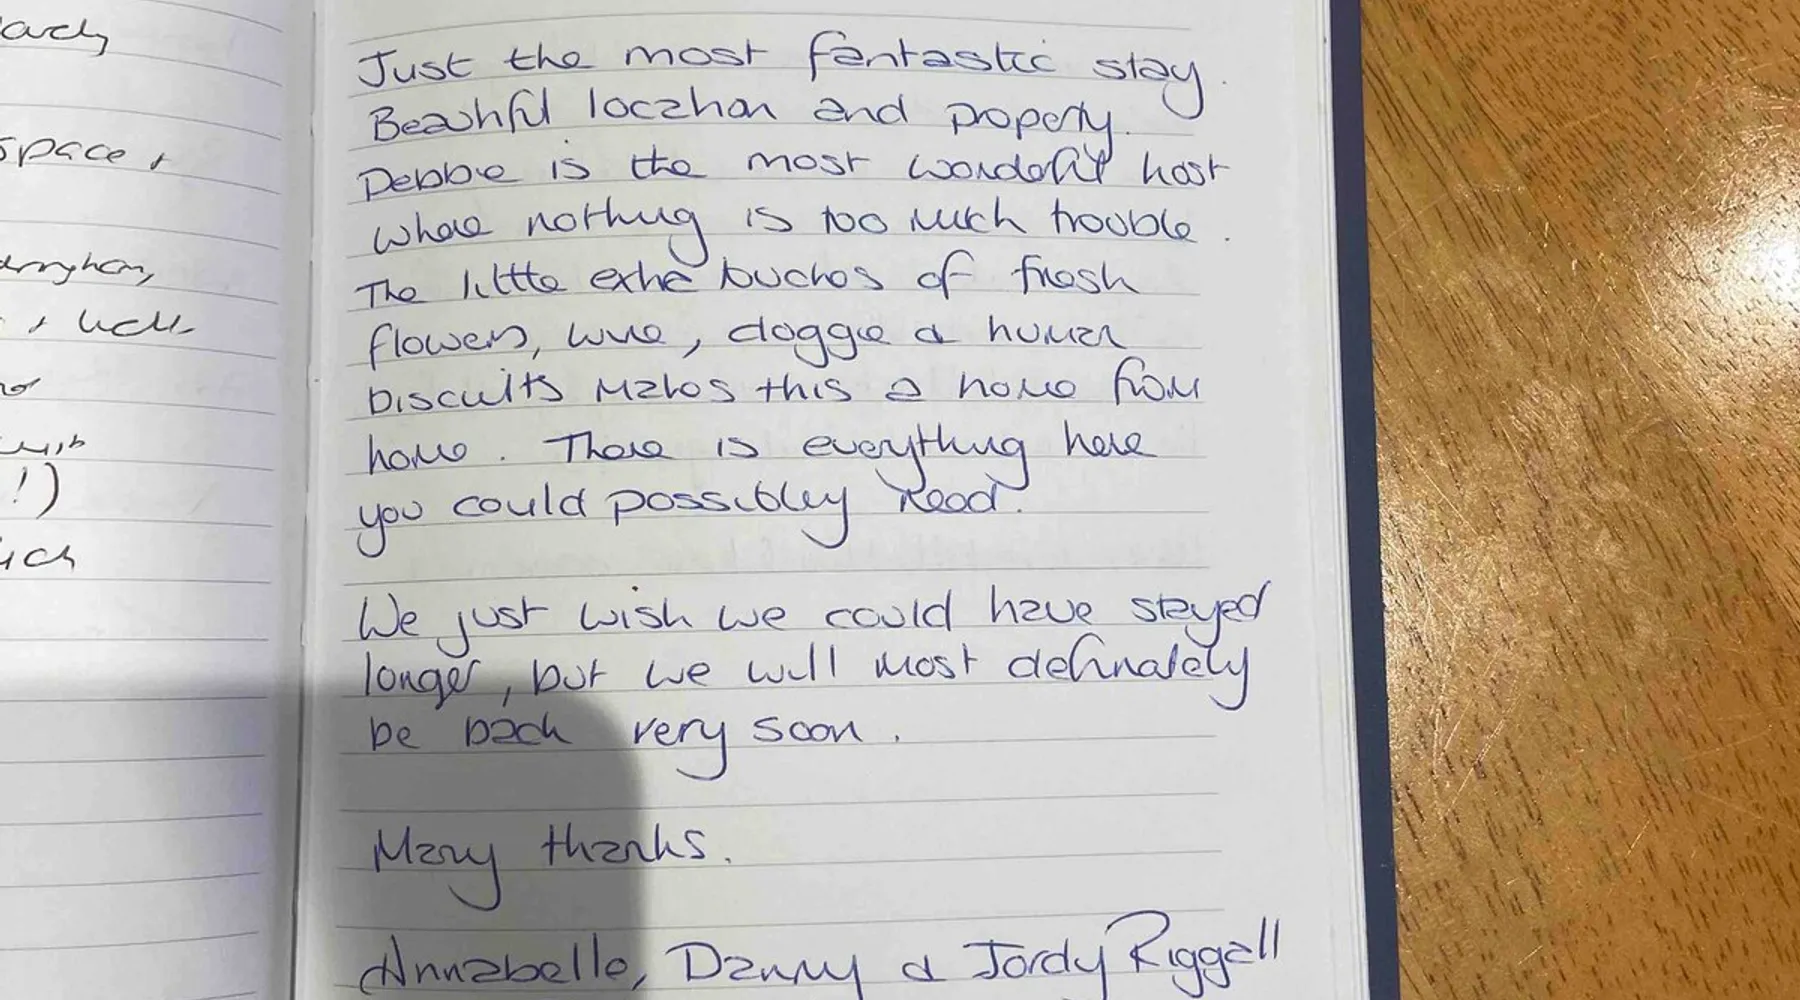 Space +
!)
Just the most fantastic stay.
Beautiful location and property.
Debbie is the most wonderful host
where nothing is too much trouble.
The little extra touches of fresh
flowers, wine, doggie & human
biscuits makes this a home from
home. There is everything here
you could possibley need.
We just wish we could have stayed
longer, but we will most definately
be back very soon.
Many thanks.
Annabelle, Danny & Jordy Riggall